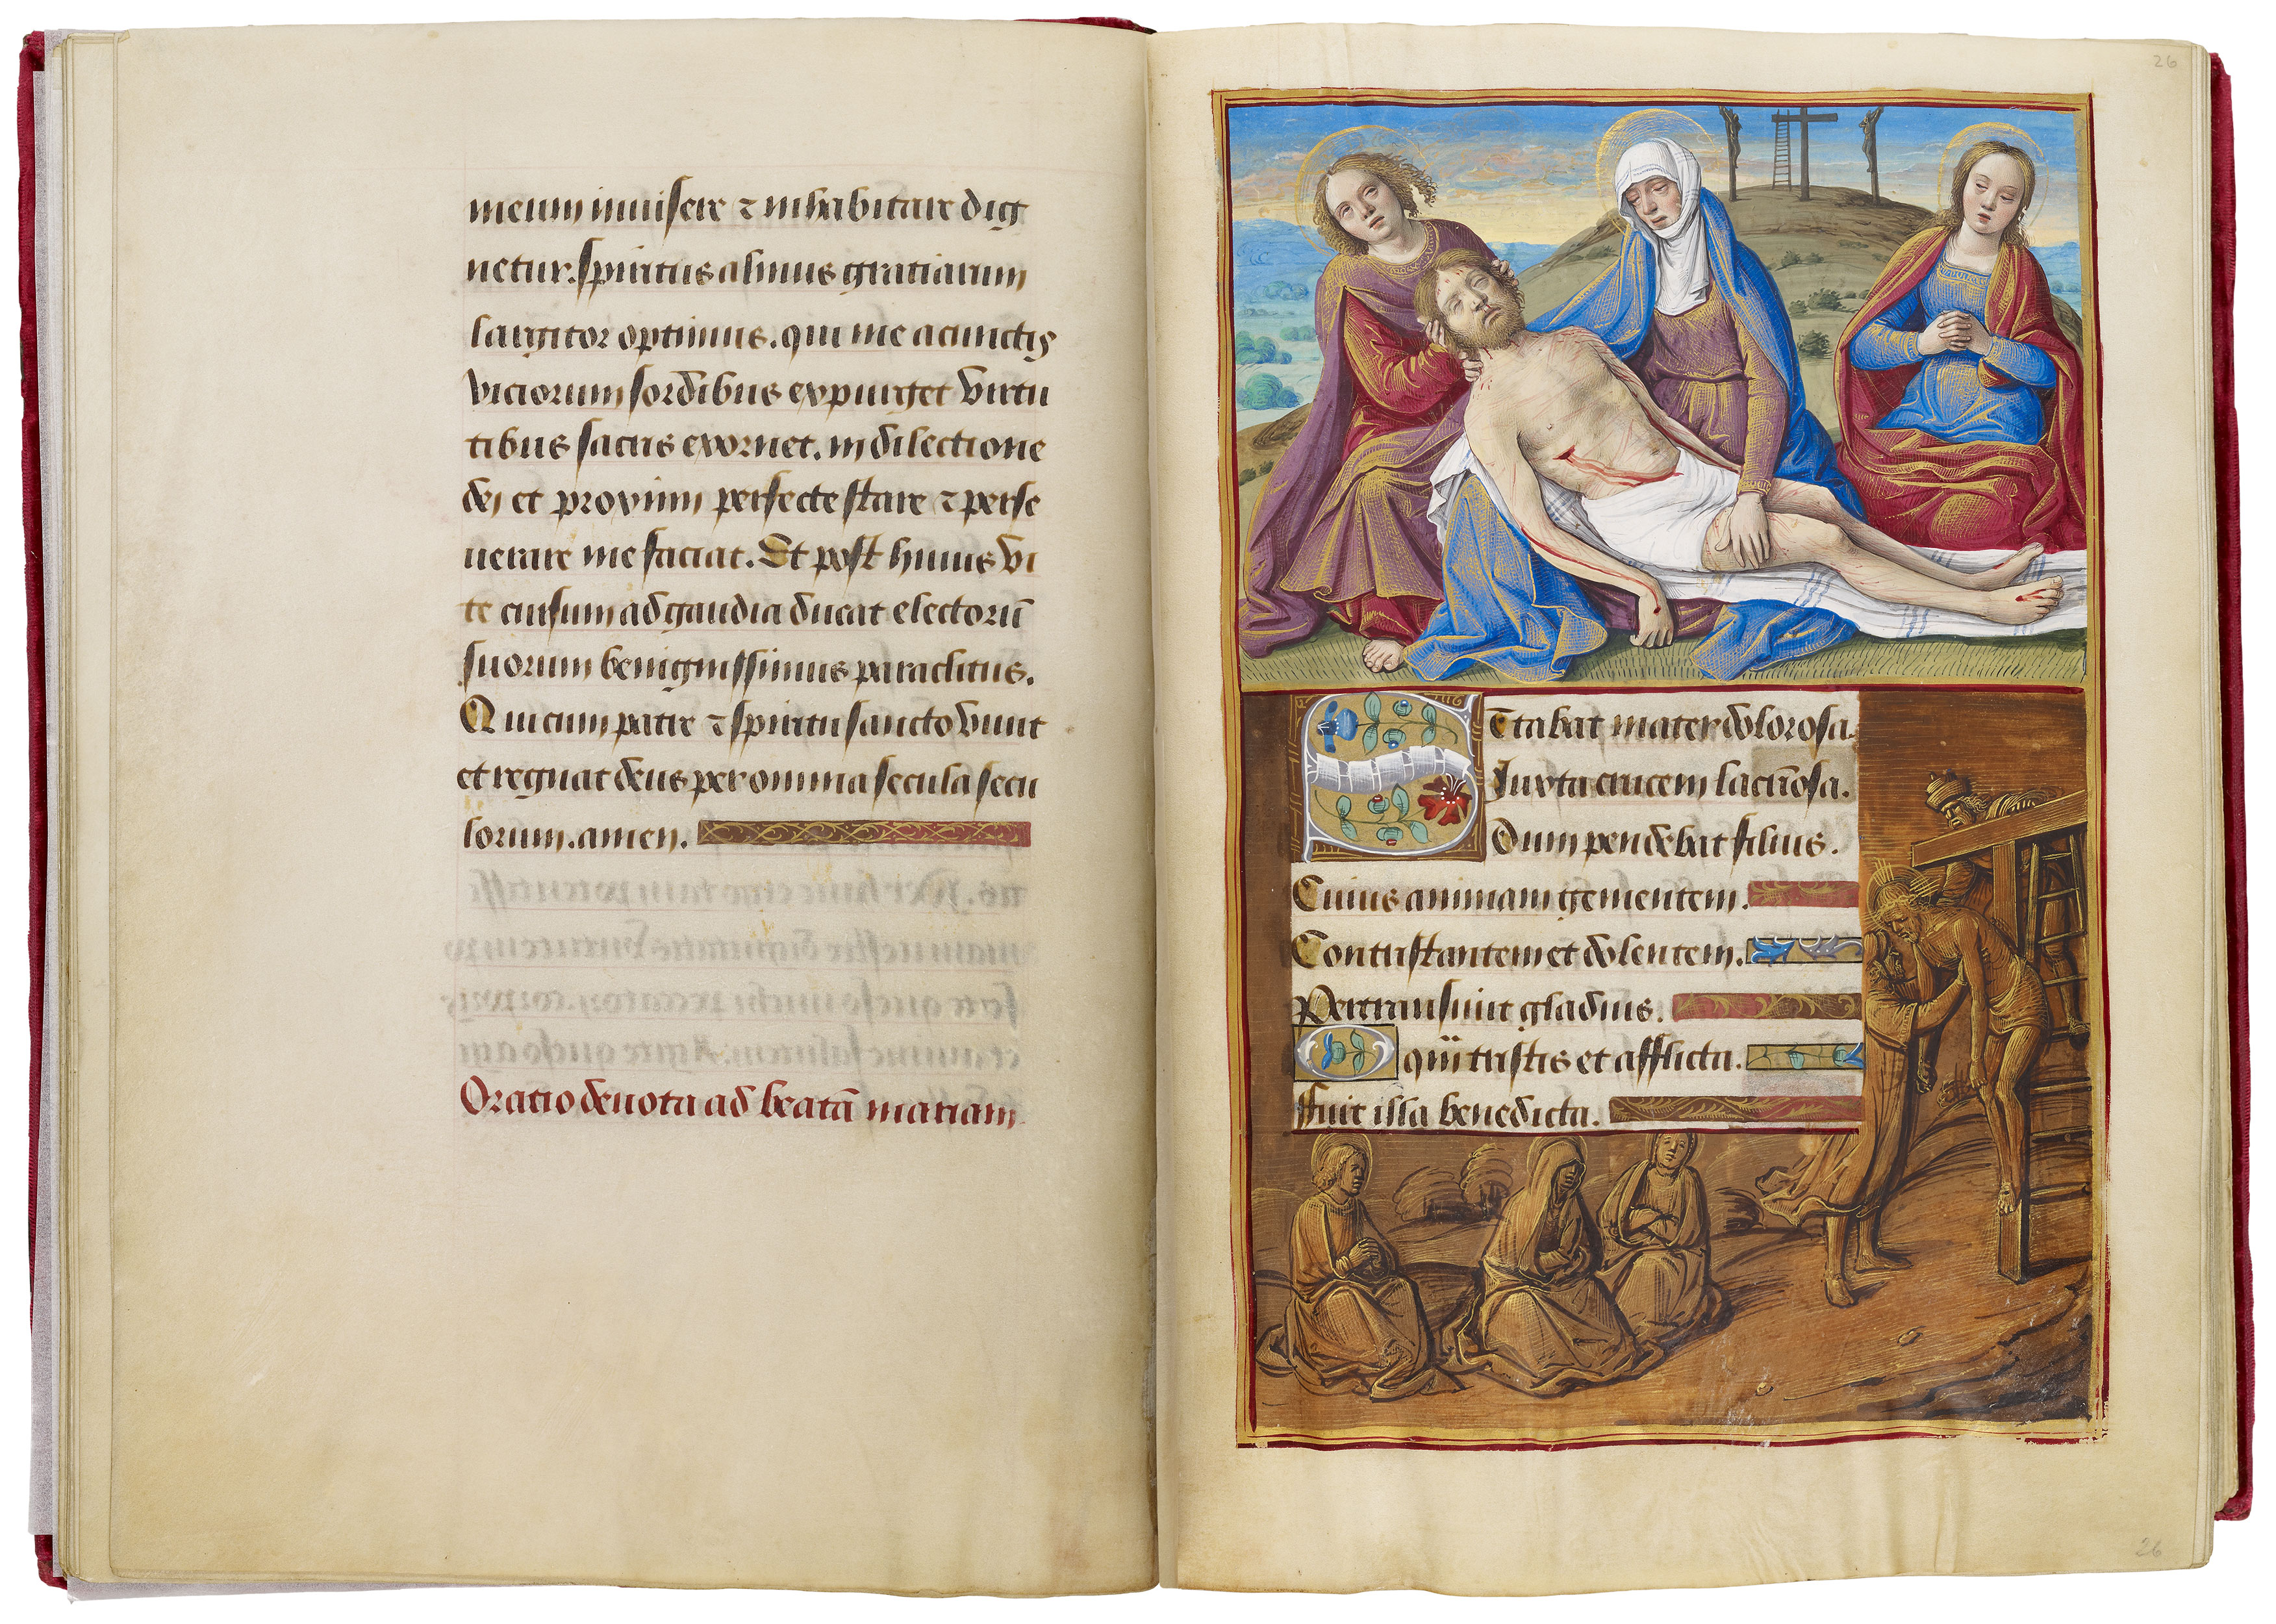 meum inuisere ⁊ inhabitare dig
netur. spiritus almus gratiarum
largitor optimus. qui me a cunctis
viciorum sordibus expurget virtu
tibus sacris exornet. in dilectione
dei et proximi perfecte stare ⁊ perse
uerare me faciat. Et post huius vi
te cursum ad gaudia ducat electorū
suorum benignissimus paraclitus.
Qui cum patre ⁊ spiritu sancto viuit
et regnat deus per omnia secula secu
lorum. amen.
Oratio deuota ad beatā mariam
26
Stabat mater dolorosa.
Iuxta crucem lacrīosa.
Dum pendebat filius.
Cuius animam gementem.
Contristantem et dolentem.
Pertransiuit gladius.
O qūi tristis et afflicta.
Fuit illa benedicta.
26